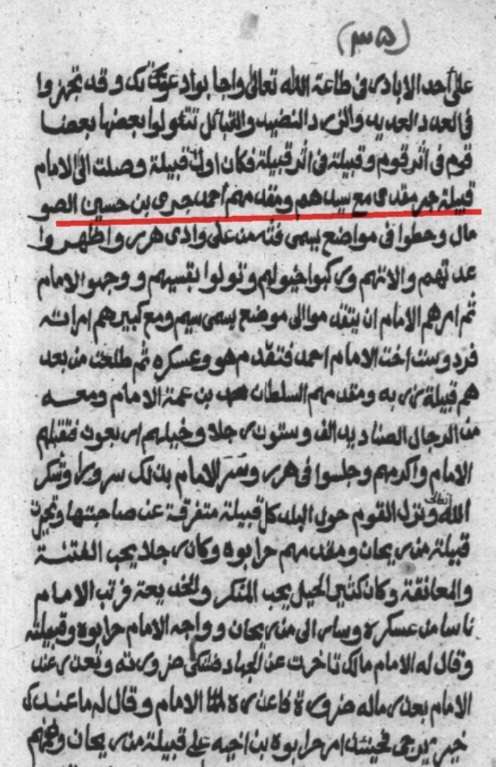 (٣٥)
على أحد الايادى فى طاعة الله تعالى واجابوا دعوتك وقد تجهزوا
فى العدد العديد والزى د النضيد والقبائل تتلوا بعضها بعضا
قوم فى اثر قوم وقبيلة فى اثر قبيلة فكان اول قبيلة وصلت الى الامام
قبيلة حبر مقدى مع سيدهم ومقدمهم احمد جرى بن حسين الصو
مال وحطوا فى مواضع يسمى من على وادى هرر واظهروا
عدتهم والاتهم وركبوا خيولهم وتولوا بقسيهم ووجهوا الامام
ثم امرهم الامام ان يتقدموا الى موضع يسمى سيم ومع كبيرهم امراته
فردوست اخت الامام احمد فتقدم هو وعسكره ثم طلعت من بعد
هم قبيلة به ومقدمهم السلطان محمد بن عمة الامام ومعه
من الرجال الصناديد الف وستون رجلا وخيلهم اربعون فقبلهم
الامام واكرمهم وجلسوا فى هرر وسر الامام بذلك سرورا وشكر
الله تعالى ونزل القوم حول البلد كل قبيلة متفرقة عن صاحبتها
قبيلة من ريحان ومقدمهم حرابوه وكان رجلا يحب الفتنة
والمعانقة وكان كثير الحيل يحب المنكر والخديعة فرتب الامام
ناسا من عسكره وسار الى من ريحان وواجه الامام حرابوه وقبيلته
وقال له الامام مالك تاخرت عن الجهاد فشكى ضرورته وتعذر عند
الامام بعذر ماله ضرورة فاعذره الامام وقال له ما عندك
خير حرابوه بن اخيه على قبيلة من ريحان